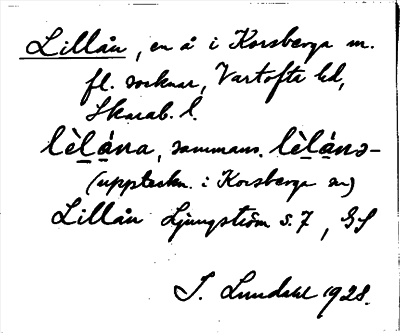 Lillån, en å i Korsberga m.
fl. socknar, Vartofta hd,
Skarab. l.
lèlána, sammans. lèlánə-
(uppteckn. i Korsberga sn)
Lillån Ljungström s. 7, GS
J. Lundahl 1928.